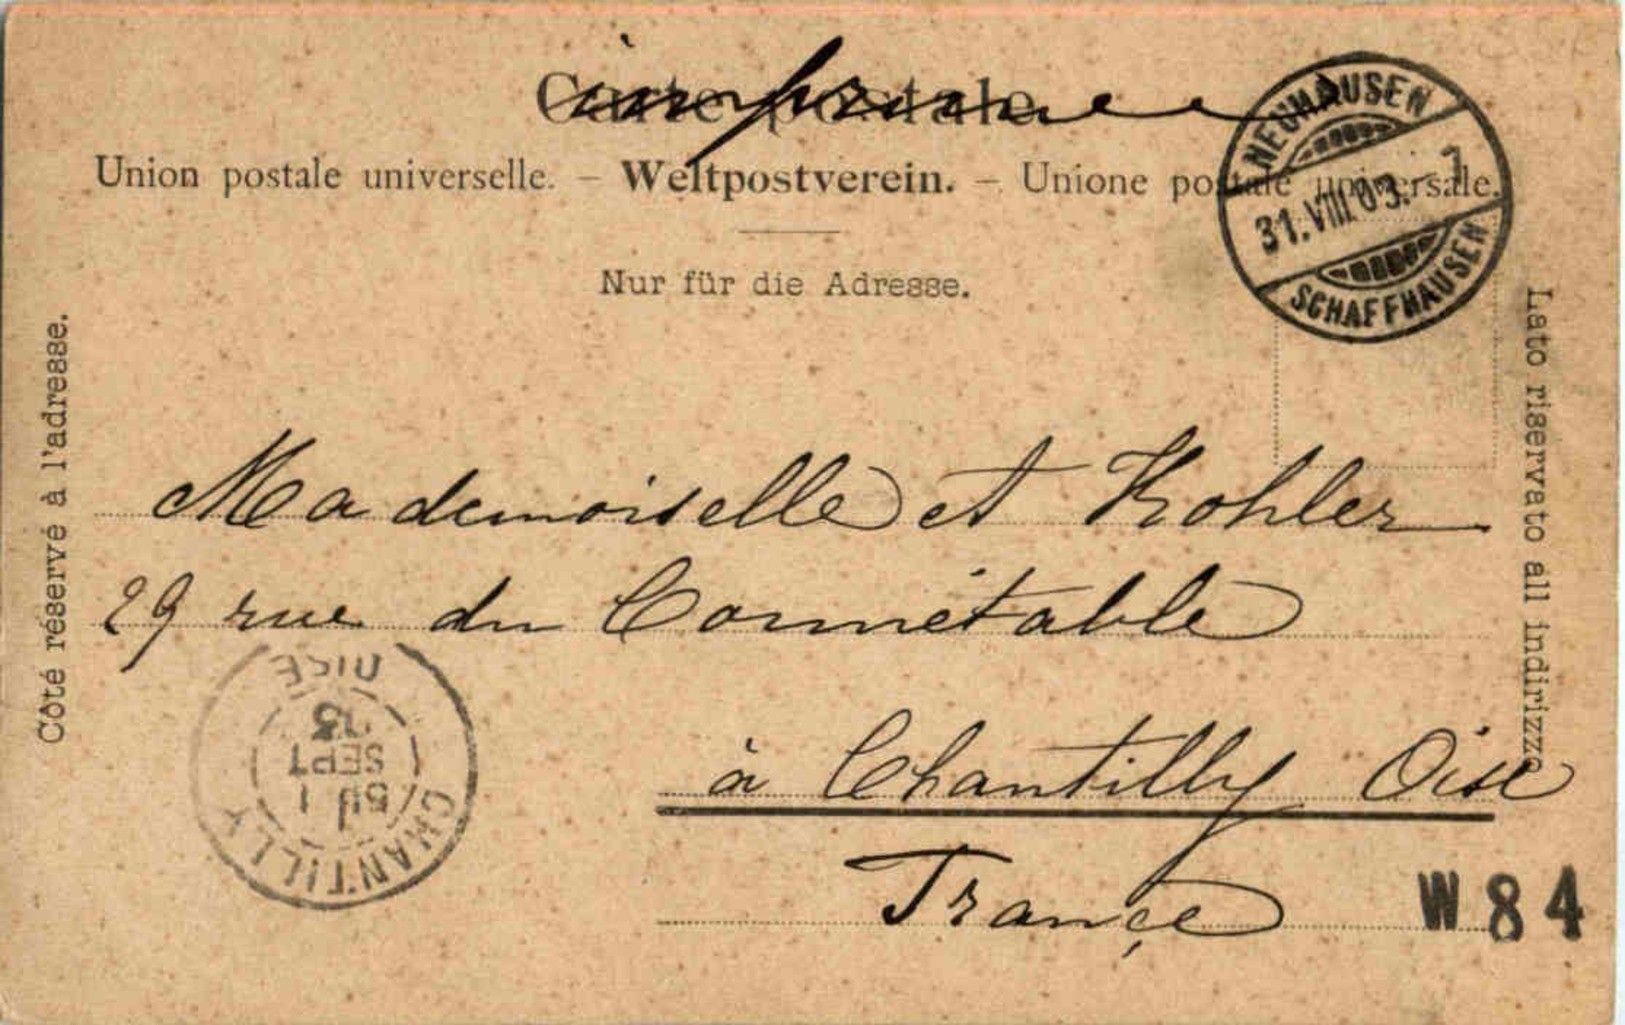 Carte postale
imprimée
Union postale universelle. – Weltpostverein. – Unione postale universale.
Nur für die Adresse.
NEUHAUSEN
31.VIII.03.-7
SCHAFFHAUSEN
Côté réservé à l'adresse.
Lato riservato all indirizzo
Mademoiselle et Kohler
29 rue du Connétable
à Chantilly Oise
Françe
CHANTILLY
1
SEPT
03
OISE
W 84